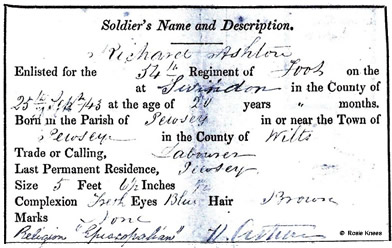 Soldier's Name and Description.
Richard Ashton
Enlisted for the 54th Regiment of Foot on the
at Swindon in the County of
25th Sept/43 at the age of 20 years " months.
Born in the Parish of Pewsey in or near the Town of
Pewsey in the County of Wilts
Trade or Calling, Labourer
Last Permanent Residence, Pewsey
Size 5 Feet Inches
Complexion Fresh Eyes Blue Hair Brown
Marks None
Religion "Episcopalian"
© Roxie Knees